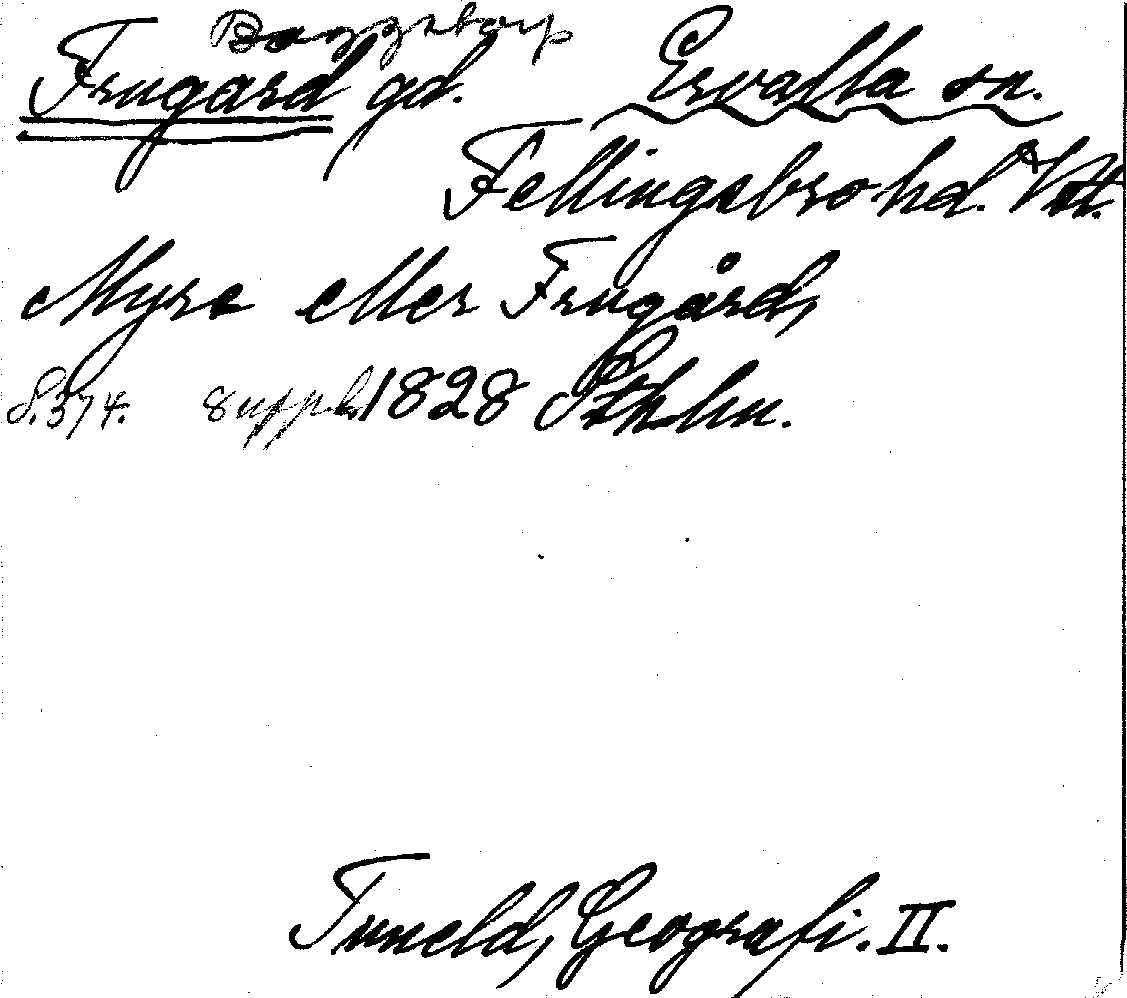 Baggetorp
Frugård gd. Ervalla sn.
Fellingsbro hd. Vstl.
Myre eller Frugård,
S. 374. suppl. 1828 Sthlm.
Tuneld, Geografi. II.